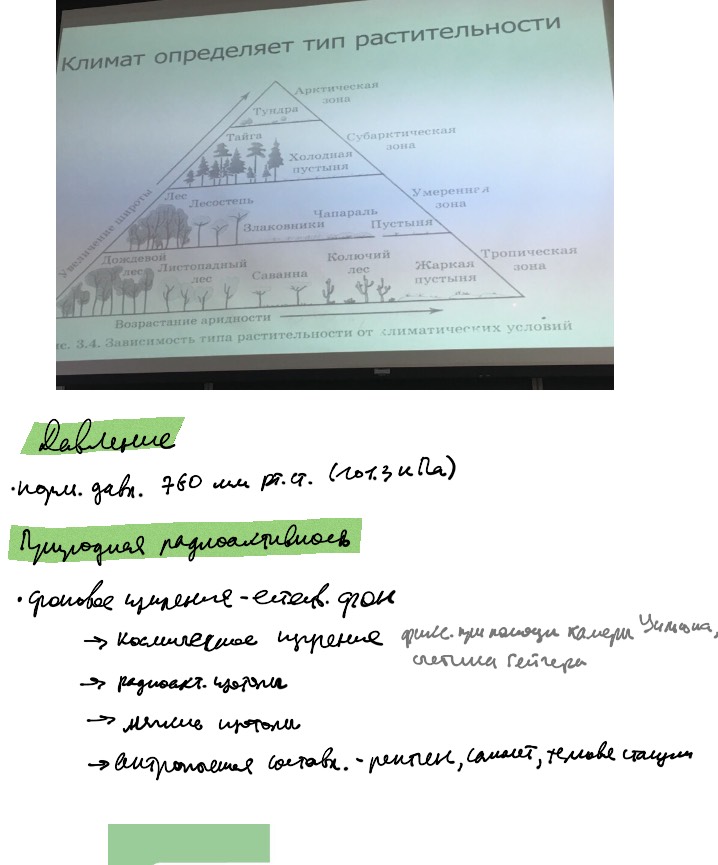 Климат определяет тип растительности
Арктическая
зона
Тундра
Тайга
Субарктическая
зона
Холодная
пустыня
Лес
Лесостепь
Умеренная
зона
Чапараль
Злаковники
Пустыня
Увеличение широты
Дождевой
лес
Листопадный
лес
Саванна
Колючий
лес
Жаркая
пустыня
Тропическая
зона
Возрастание аридности
ис. 3.4. Зависимость типа растительности от климатических условий
Давление
• норм. давл. 760 мм рт.ст. (101.3 кПа)
Природная радиоактивность
• фоновое излучение - естеств. фон
→ космическое излучение фикс. при помощи камеры Вильсона,
счетчика Гейгера
→ радиоакт. изотопы
→ изотопы
→ составл. - рентген, самолет,